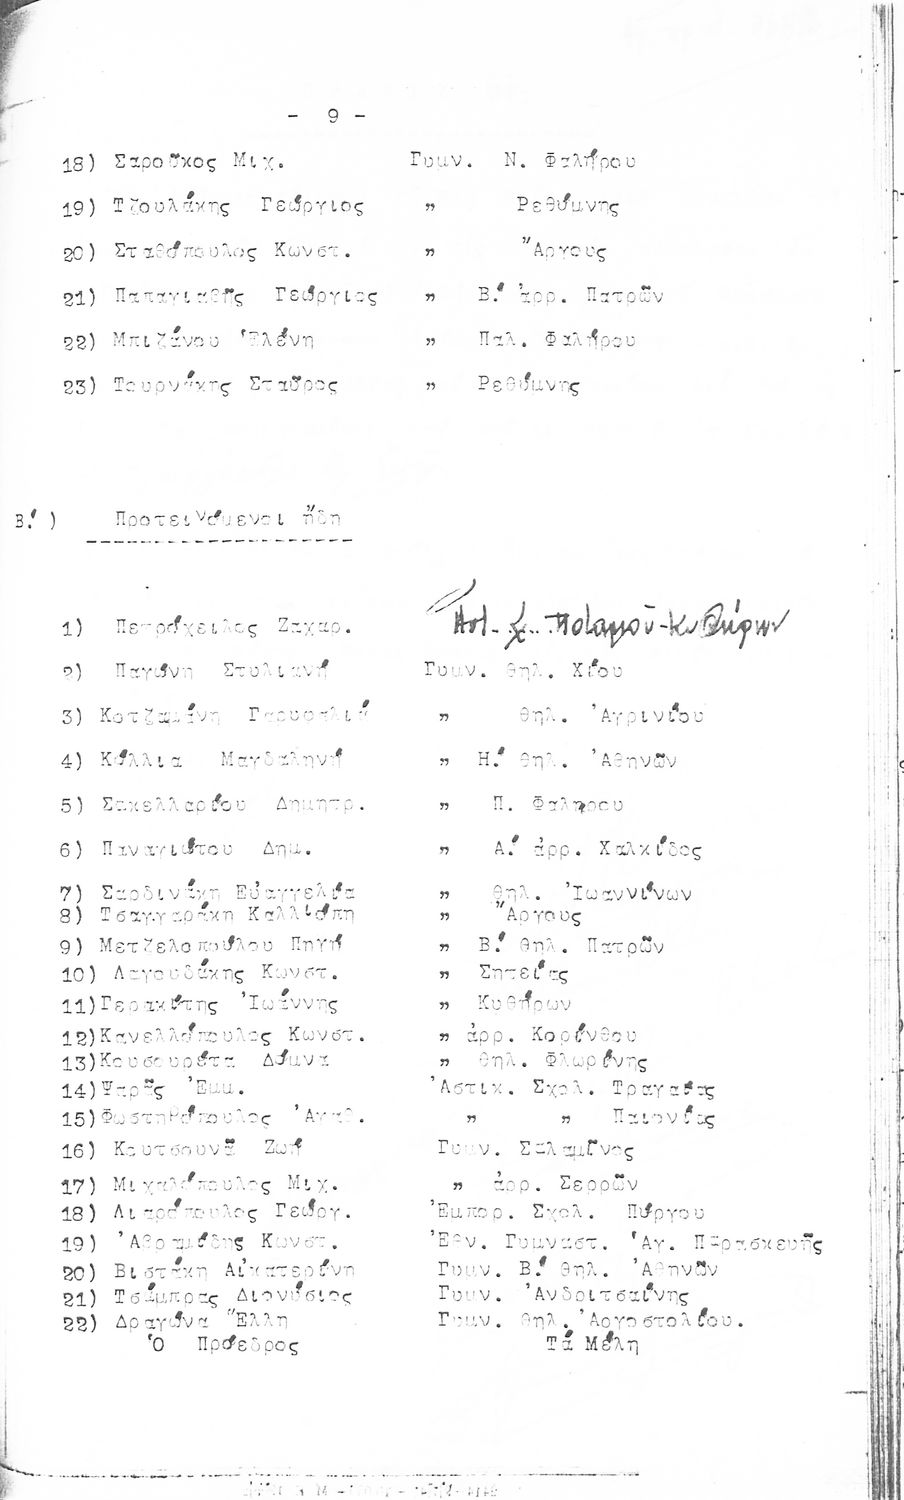 - 9 -
18) Σαροῦκος Μιχ. Γυμν. Ν. Φαλήρου
19) Τζουλάκης Γεώργιος " Ρεθύμνης
20) Σταθόπουλος Κωνστ. " Ἄργους
21) Παπαγιαθῆς Γεώργιος " Β.' ἀρρ. Πατρῶν
22) Μπιζάνου Ἑλένη " Παλ. Φαλήρου
23) Τουρνάκης Σταῦρος " Ρεθύμνης
Β.' ) Προτεινόμενοι ἤδη
1) Πετρόχειλος Ζαχαρ. Ἀστ. Σχ. Ποταμοῦ-Κυθήρων
2) Παγώνη Στυλιανή Γυμν. θηλ. Χίου
3) Κοτζαμάνη Γαρυφαλιά " θηλ. Ἀγρινίου
4) Κόλλια Μαγδαληνή " Η.' θηλ. Ἀθηνῶν
5) Σακελλαρίου Δημητρ. " Π. Φαληρου
6) Παναγιώτου Δημ. " Α.' ἀρρ. Χαλκίδος
7) Σαρδινάκη Εὐαγγελία " θηλ. Ἰωαννίνων
8) Τσαγγαράκη Καλλιόπη " Ἄργους
9) Μετζελοπούλου Πηγή " Β.' θηλ. Πατρῶν
10) Λαγουδάκης Κωνστ. " Σητείας
11)Γερακίτης Ἰωάννης " Κυθήρων
12)Κανελλόπουλος Κωνστ. " ἀρρ. Κορίνθου
13)Κουσουρέτα Δόμνα " θηλ. Φλωρίνης
14)Ψαρᾶς Ἐμμ. Ἀστικ. Σχολ. Τραγαίας
15)Φωστηρόπουλος Ἀγαθ. " " Παιονίας
16) Κουτσουνᾶ Ζωή Γυμν. Σαλαμῖνος
17) Μιχαλόπουλος Μιχ. " ἀρρ. Σερρῶν
18) Λιαρόπουλος Γεώργ. Ἐμπορ. Σχολ. Πύργου
19) Ἀβραμίδης Κωνστ. Ἐθν. Γυμναστ. Ἁγ. Παρασκευῆς
20) Βιστάκη Αἰκατερίνη Γυμν. Β.' θηλ. Ἀθηνῶν
21) Τσάμπρας Διονύσιος Γυμν. Ἀνδριτσαίνης
22) Δραγώνα Ἕλλη Γυμν. θηλ. Ἀργοστολίου.
Ὁ Πρόεδρος Τά Μέλη